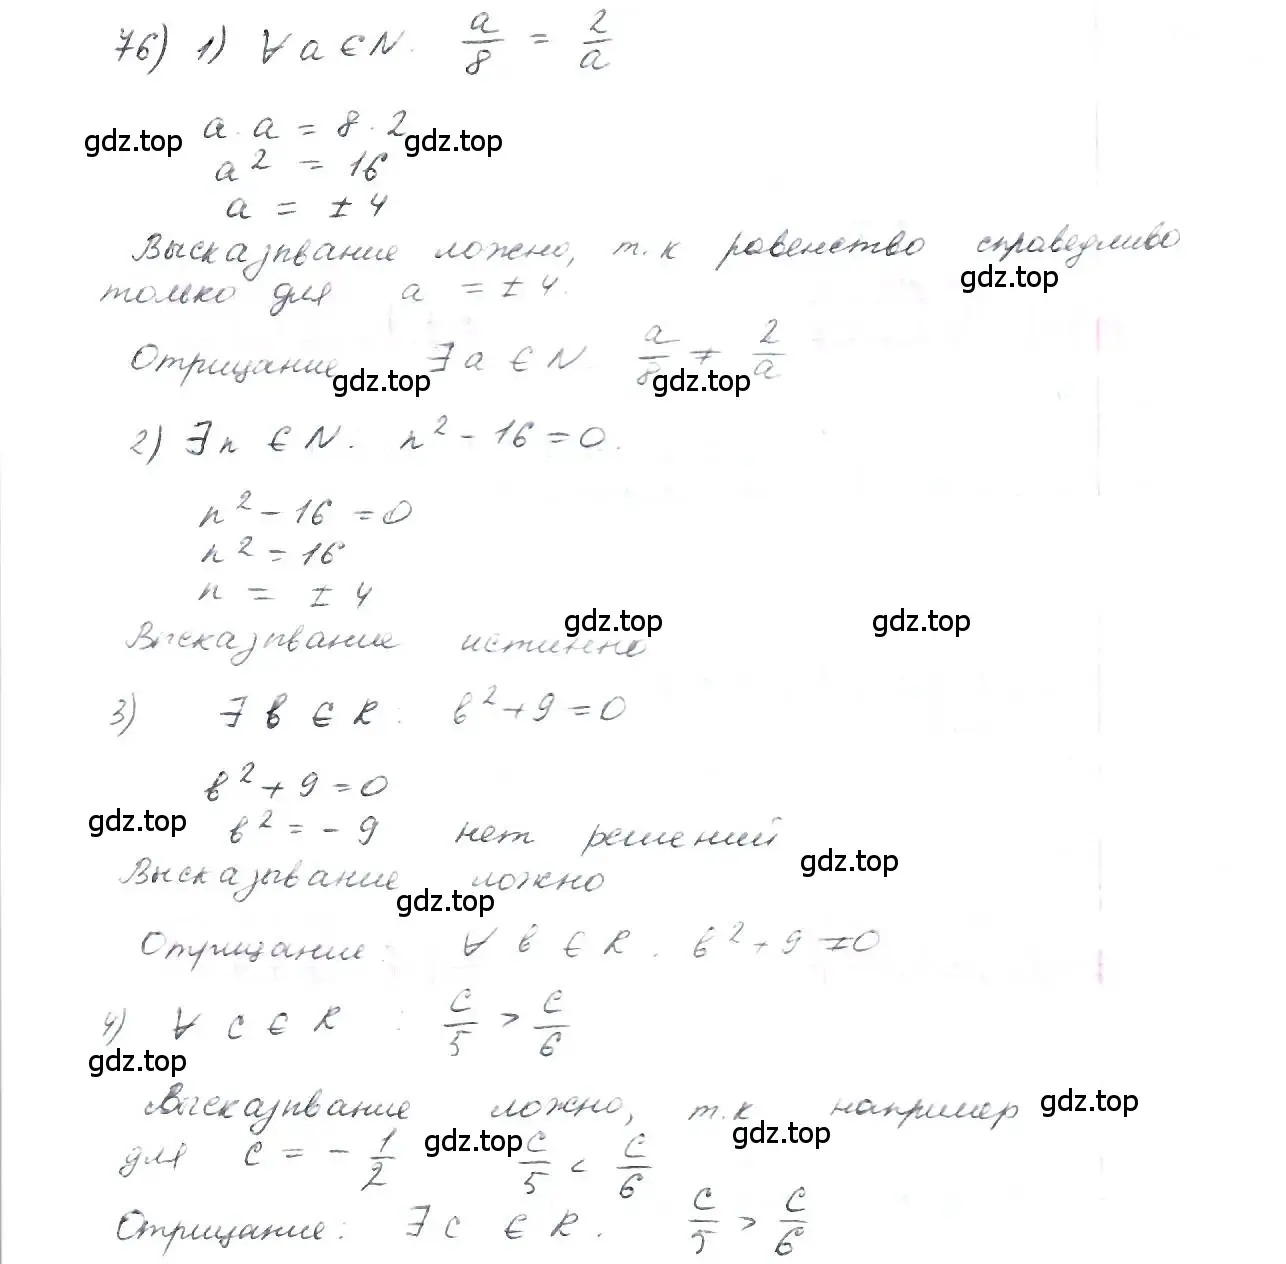 76) 1) ∀ a ∈ N. a/8 = 2/a
a · a = 8 · 2
gdz.top gdz.top
a² = 16
a = ± 4
Высказывание ложно, т.к равенство справедливо
только для a = ± 4. gdz.top
Отрицание ∃ a ∈ N a/8 ≠ 2/a
gdz.top gdz.top
2) ∃ n ∈ N: n² - 16 = 0.
n² - 16 = 0
n² = 16
n = ± 4
gdz.top gdz.top
Высказывание истинно
3) ∃ b ∈ R: b² + 9 = 0
b² + 9 = 0
gdz.top b² = - 9 нет решений
gdz.top
Высказывание ложно
gdz.top
Отрицание: ∀ b ∈ R. b² + 9 ≠ 0
4) ∀ c ∈ R : c/5 > c/6
gdz.top
Высказывание ложно, т.к например gdz.top
для c = - 1/2 gdz.top c/5 < c/6 gdz.top
Отрицание: ∃ c ∈ R. c/5 > c/6